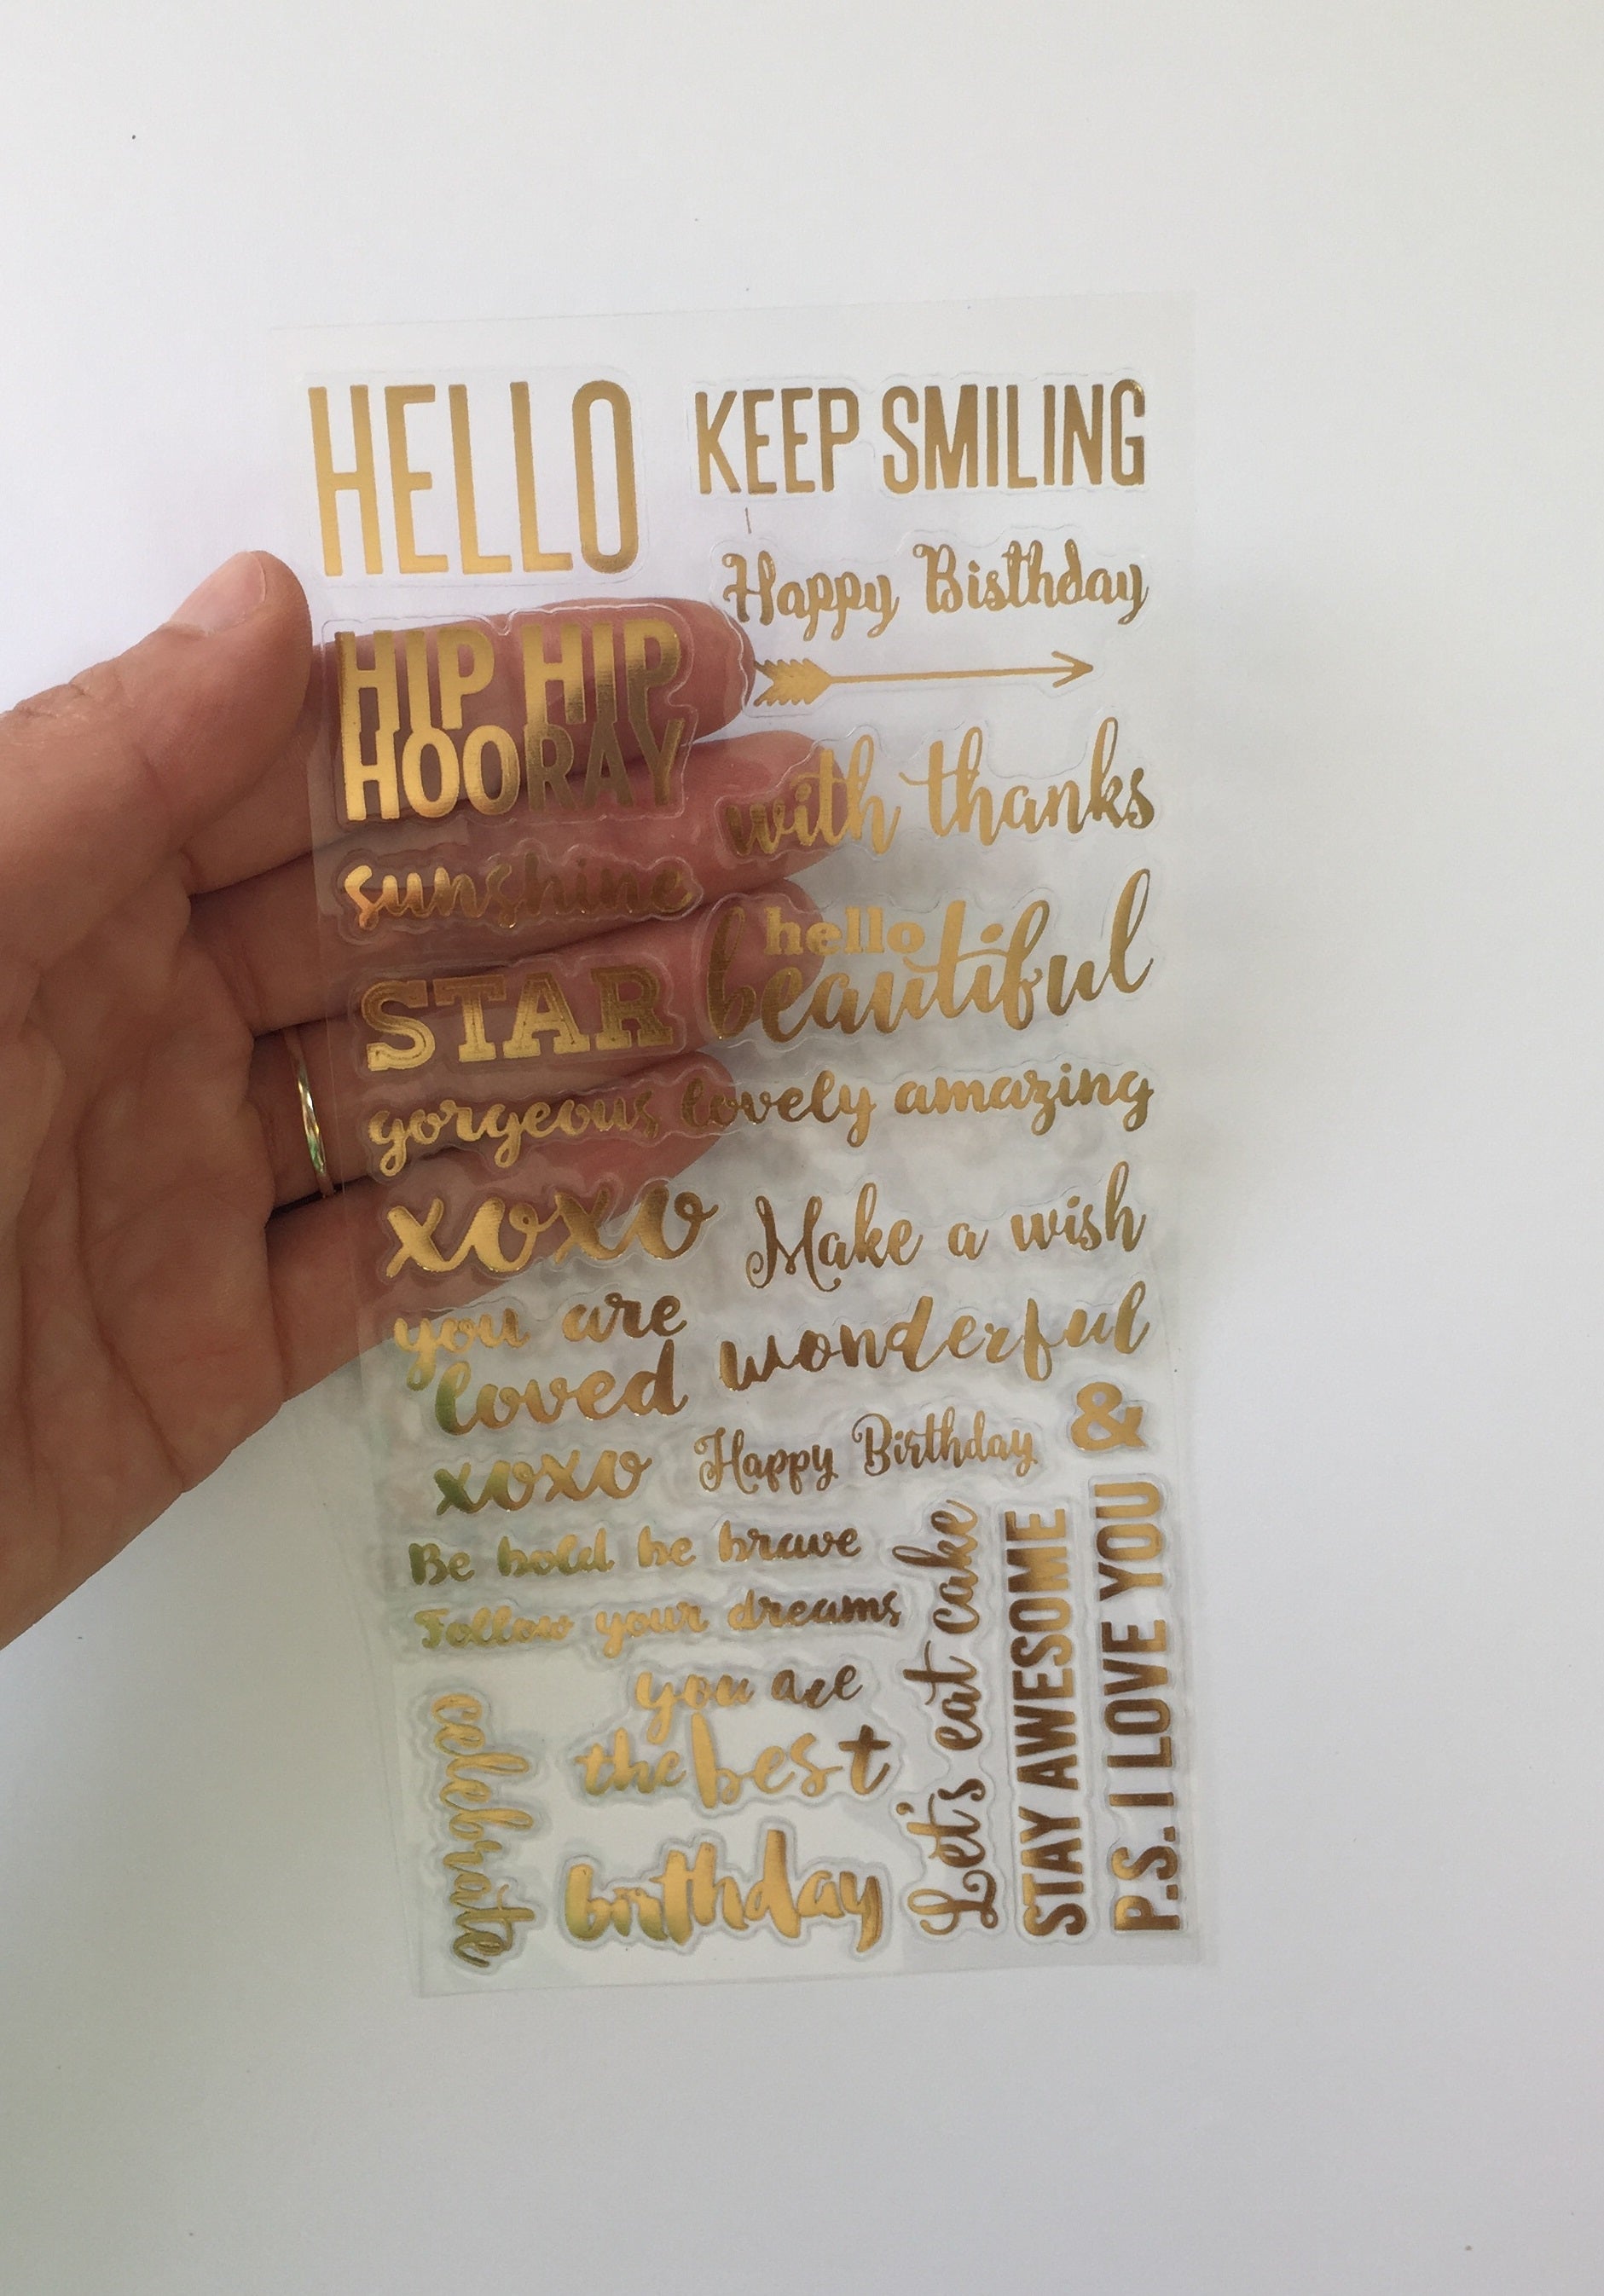 HELLO
KEEP SMILING
Happy Birthday
HIP HIP
HOORAY
with thanks
sunshine
hello
beautiful
STAR
gorgeous lovely amazing
xoxo
Make a wish
you are
loved
wonderful
&
xoxo
Happy Birthday
Be bold be brave
Follow your dreams
you are
the best
celebrate
birthday
Let's eat cake
STAY AWESOME
P.S. I LOVE YOU